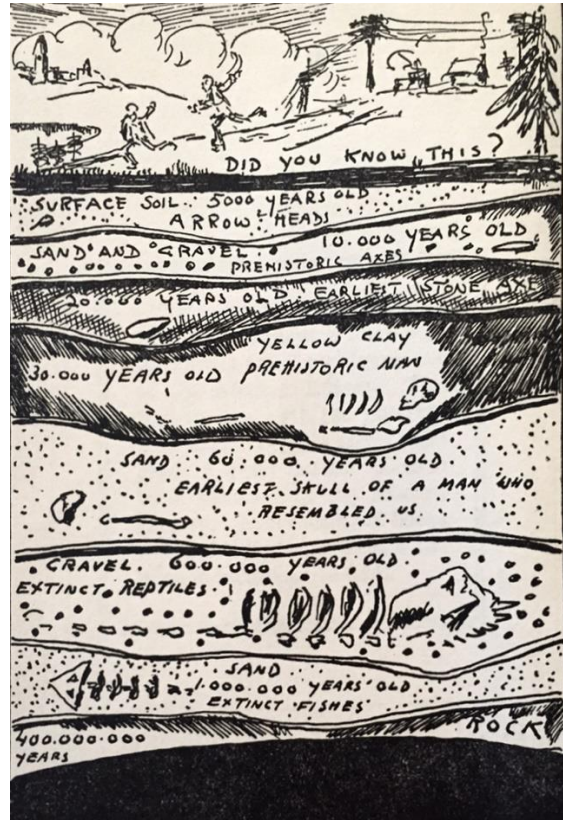 DID YOU KNOW THIS?
SURFACE SOIL. 5000 YEARS OLD
ARROW HEADS
SAND AND GRAVEL. 10.000 YEARS OLD
PREHISTORIC AXES
20.000 YEARS OLD. EARLIEST STONE AXE
YELLOW CLAY
30.000 YEARS OLD PREHISTORIC MAN
SAND 60.000 YEARS OLD
EARLIEST SKULL OF A MAN WHO
RESEMBLED US
GRAVEL. 600.000 YEARS OLD
EXTINCT REPTILES.
SAND
1.000.000 YEARS OLD
EXTINCT FISHES
ROCK
400.000.000
YEARS